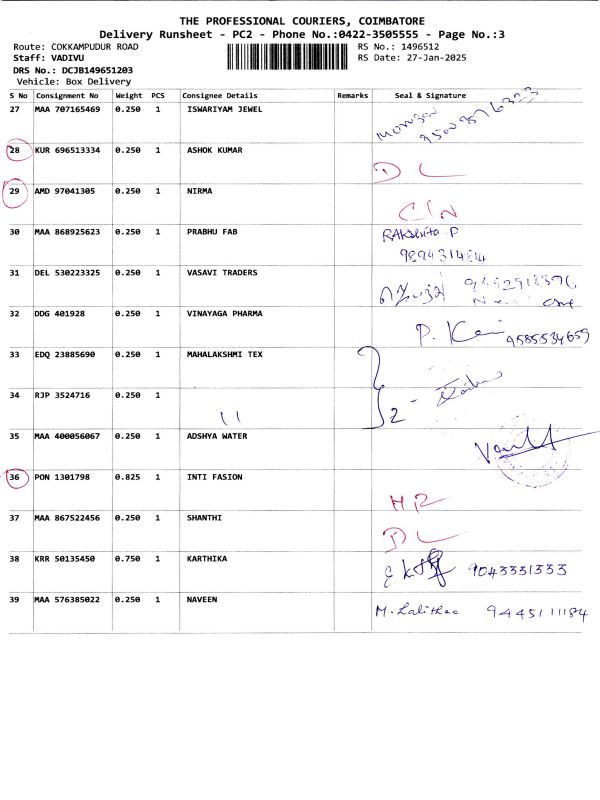 THE PROFESSIONAL COURIERS, COIMBATORE
Delivery Runsheet - PC2 - Phone No.:0422-3505555 - Page No.:3
Route: COKKAMPUDUR ROAD
Staff: VADIVU
DRS No.: DCJB149651203
Vehicle: Box Delivery
RS No.: 1496512
RS Date: 27-Jan-2025
S No Consignment No Weight PCS Consignee Details Remarks Seal & Signature
27 MAA 707165469 0.250 1 ISWARIYAM JEWEL
28 KUR 696513334 0.250 1 ASHOK KUMAR D L
29 AMD 97041305 0.250 1 NIRMA C/N
30 MAA 868925623 0.250 1 PRABHU FAB RAKshita P
9894314814
31 DEL 530223325 0.250 1 VASAVI TRADERS
32 DDG 401928 0.250 1 VINAYAGA PHARMA P. 9585534659
33 EDQ 23885690 0.250 1 MAHALAKSHMI TEX
34 RJP 3524716 0.250 1 11 2 -
35 MAA 400056067 0.250 1 ADSHYA WATER
36 PON 1301798 0.825 1 INTI FASION HR
37 MAA 867522456 0.250 1 SHANTHI D L
38 KRR 50135450 0.750 1 KARTHIKA 9043331333
39 MAA 576385022 0.250 1 NAVEEN M. Lalithaa 9445111184